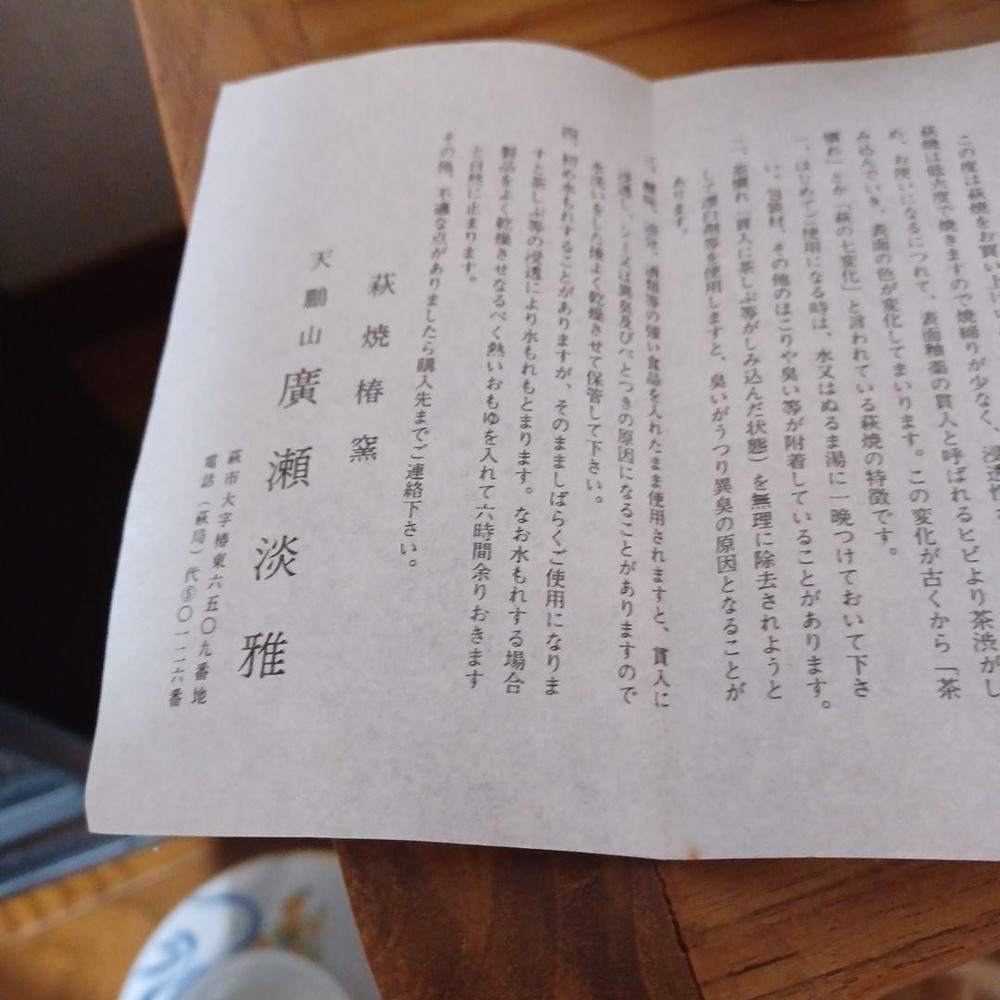 この度は萩焼をお買い上げい
萩焼は低火度で焼きますので焼締りが少なく、浸透性
め、お使いになるにつれて、表面釉薬の貫入と呼ばれるヒビより茶渋がし
み込んでいき、表面の色が変化してまいります。この変化が古くから「茶
慣れ」とか「萩の七変化」と言われている萩焼の特徴です。
一、はじめてご使用になる時は、水又はぬるま湯に一晩つけておいて下さ
い。包装材、その他のほこりや臭い等が附着していることがあります。
二、茶慣れ（貫入に茶しぶ等がしみ込んだ状態）を無理に除去されようと
して漂白剤等を使用しますと、臭いがうつり異臭の原因となることが
あります。
三、油分、酒類等の強い食品を入れたまま使用されますと、貫入に
浸透し、シミ又は異臭及びべとつきの原因になることがありますので
水洗いをした後よく乾燥させて保管して下さい。
四、初め水もれすることがありますが、そのまましばらくご使用になりま
すと茶しぶ等の浸透により水もれもとまります。なお水もれする場合
製品をよく乾燥させなるべく熱いおもゆを入れて六時間余りおきます
と自然に止まります。
その他、不適な点がありましたら購入先までご連絡下さい。
萩焼椿窯
天鵬山 廣瀬淡雅
萩市大字椿東六五〇九番地
電話（萩局）代⑤〇一二六番